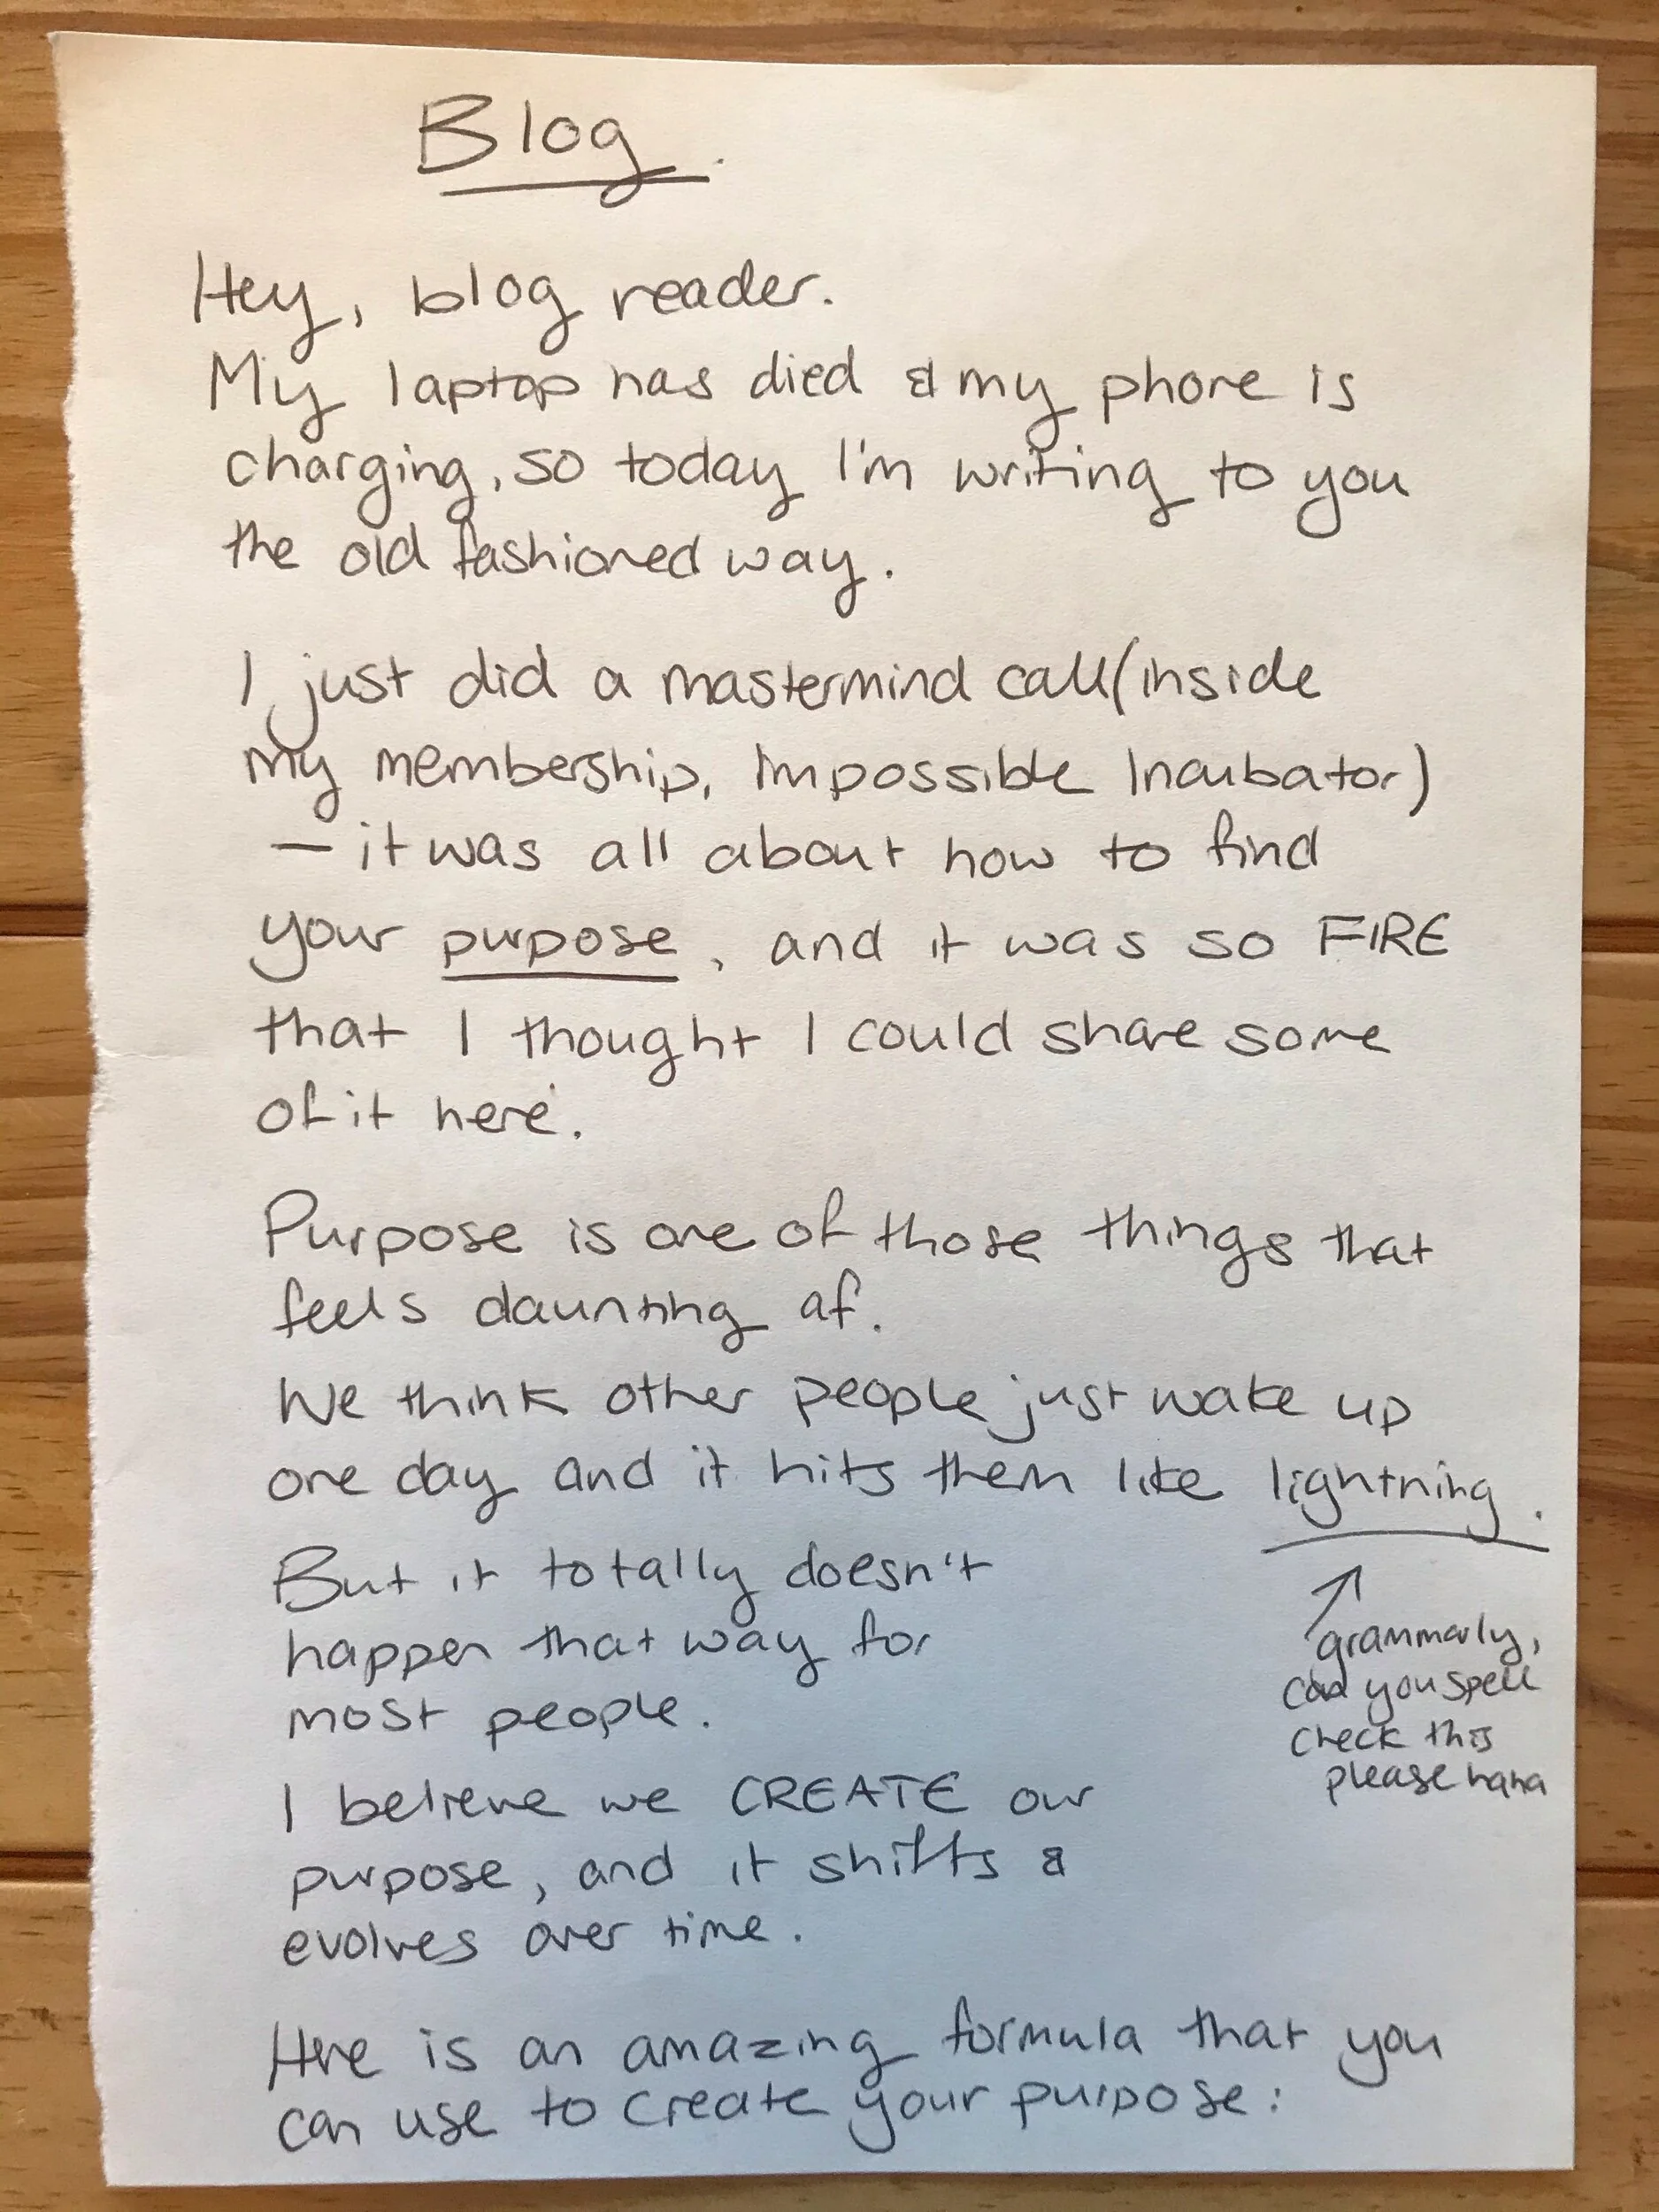 Blog.
Hey, blog reader.
My laptop has died & my phone is
charging, so today I'm writing to you
the old fashioned way.
I just did a mastermind call (inside
my membership, Impossible Incubator)
– it was all about how to find
your purpose, and it was so FIRE
that I thought I could share some
of it here.
Purpose is one of those things that
feels daunting af.
We think other people just wake up
one day and it hits them like lightning.
But it totally doesn't
happen that way for
most people.
grammarly,
can you spell
check this
please haha
I believe we CREATE our
purpose, and it shifts &
evolves over time.
Here is an amazing formula that you
can use to create your purpose: